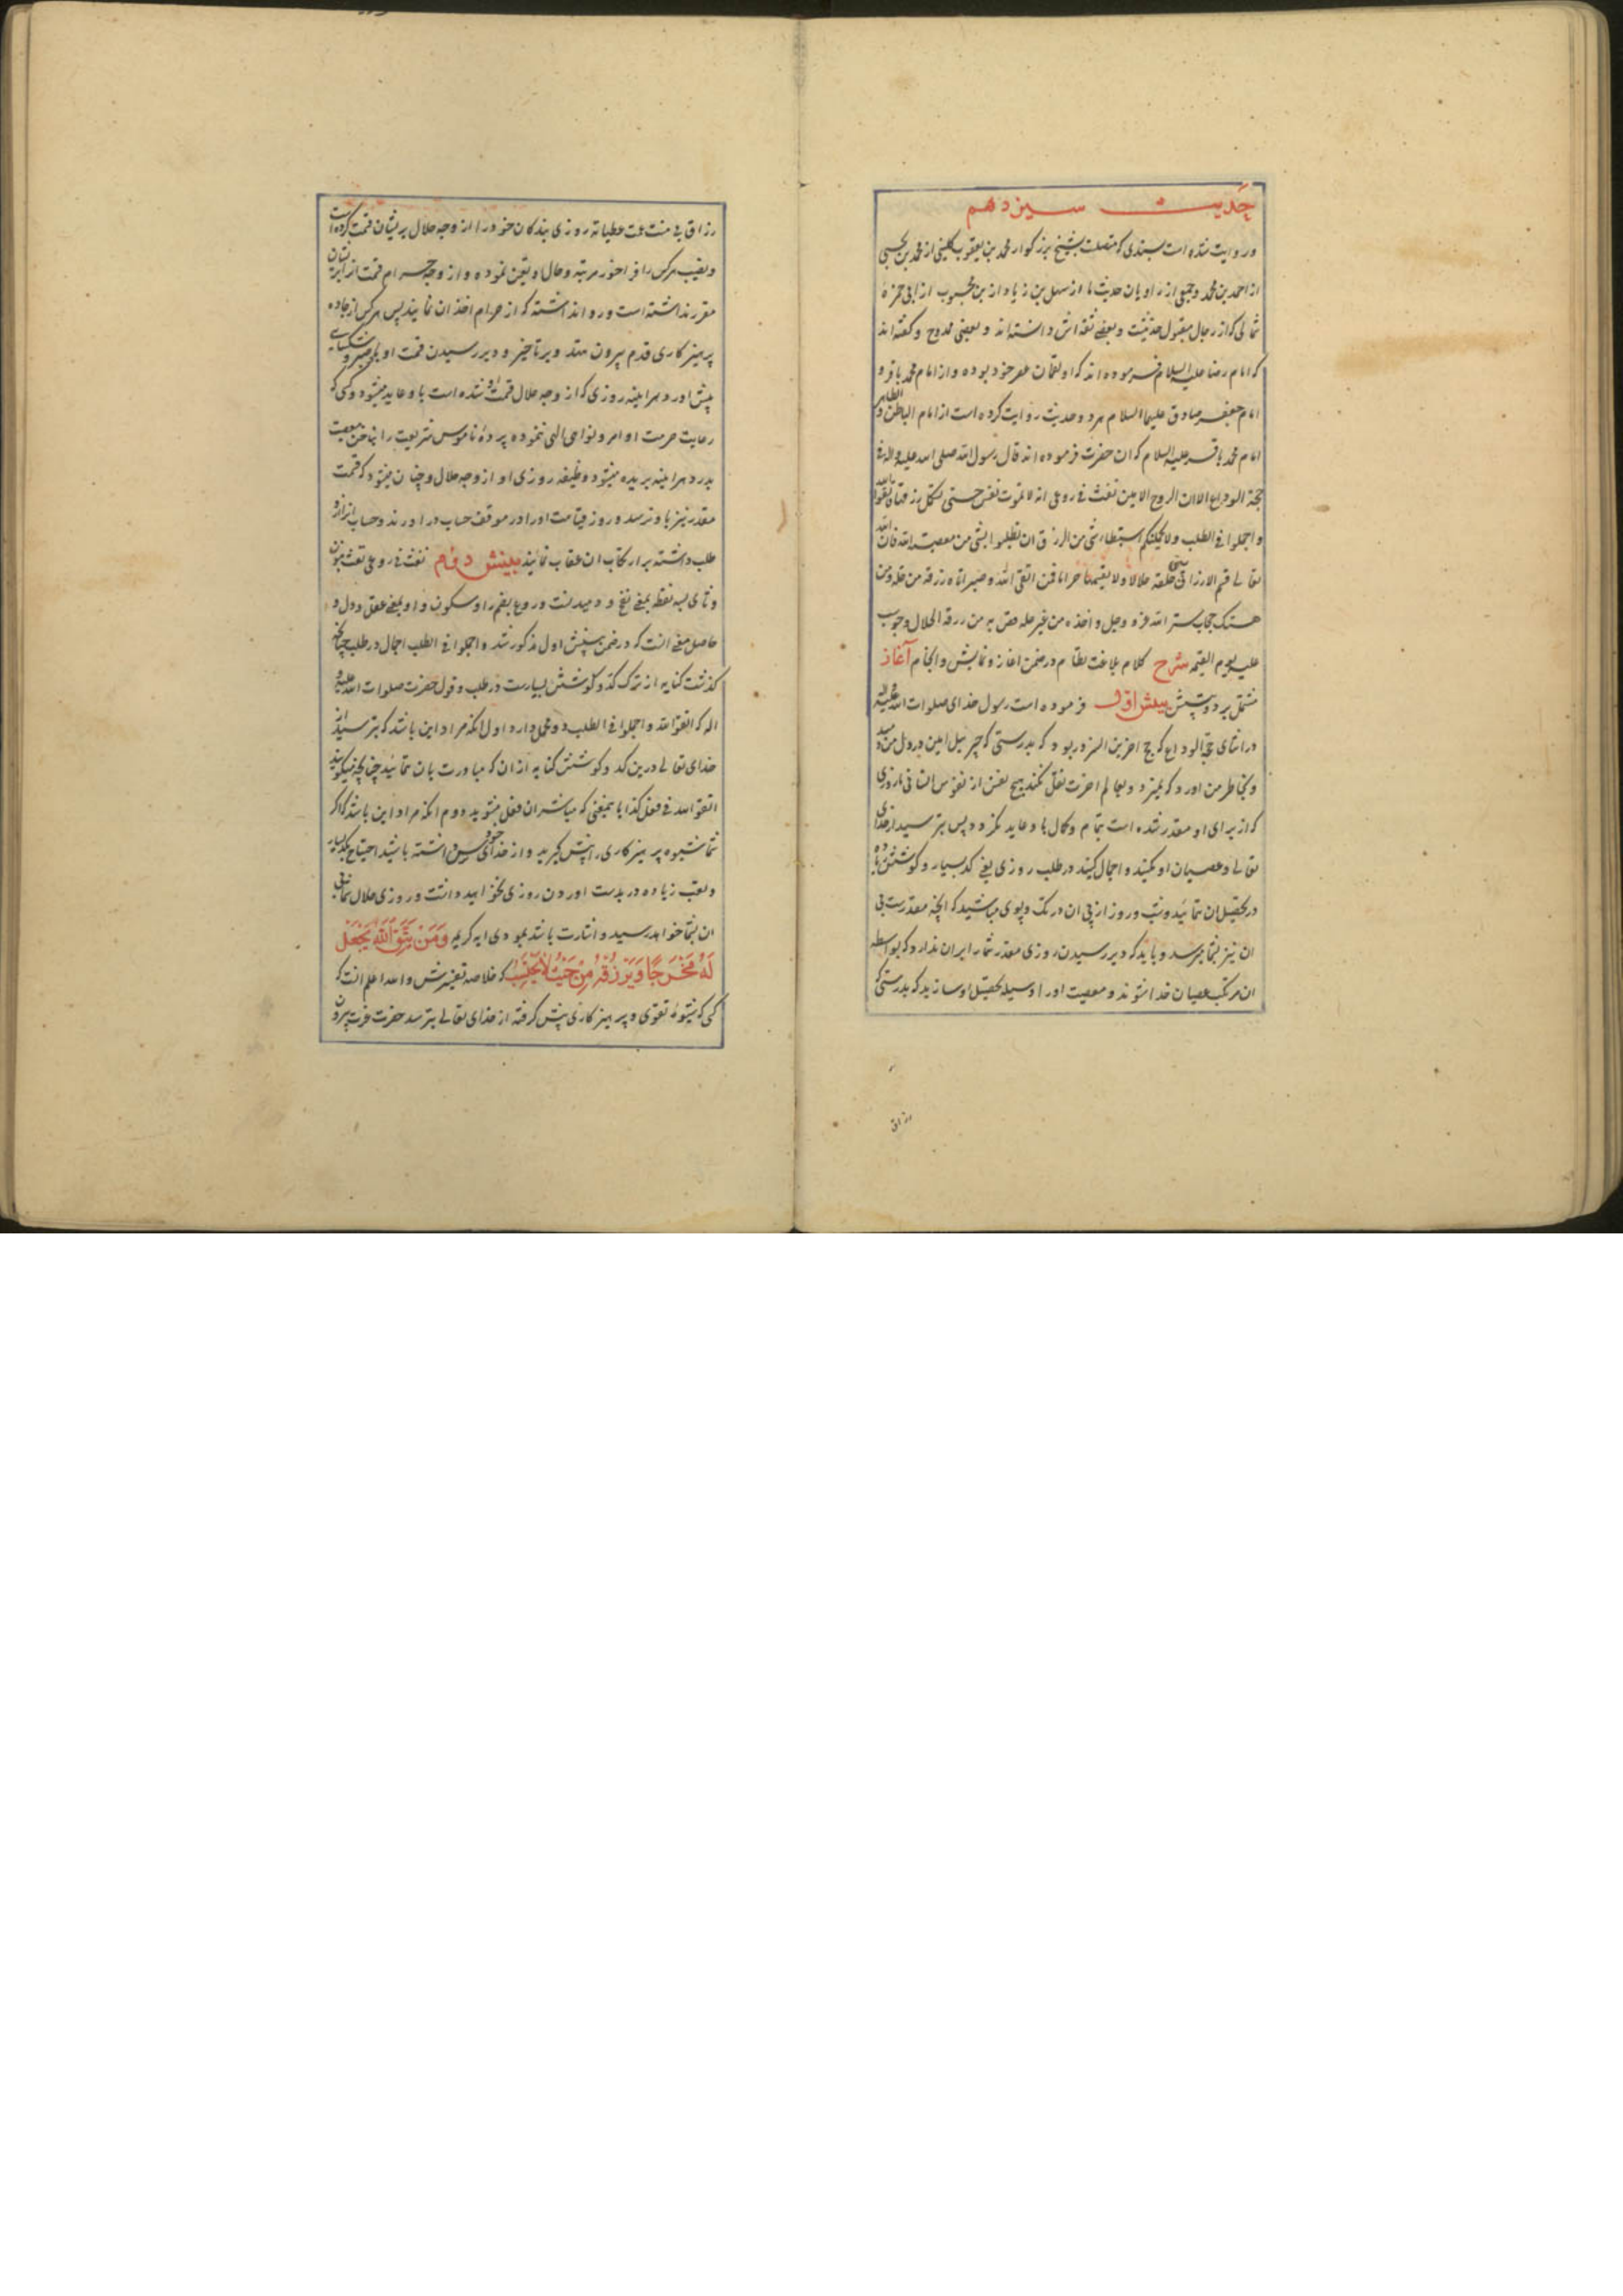 حدیث سیزدهم
و روایت شده است بسندی که متصلست بشیخ بزرگوار محمد بن یعقوب کلینی از محمد بن یحیی
از احمد بن محمد و جمعی از راویان حدیث ما از سهل بن زیاد از بن محبوب از ابی حمزه
ثمالی که از رجال مقبول حدیثست و بعضی ثقه اش دانسته اند و بعضی ممدوح و گفته اند
که امام رضا علیه السلام فرموده اند که او لقمان عصر خود بوده و از امام محمد باقر و
امام جعفر صادق علیهما السلام هر دو حدیث روایت کرده است از امام الباطن و الظاهر
امام محمد باقر علیه السلام که ان حضرت فرموده اند قال رسول الله صلی الله علیه و اله فی
حجة الوداع الا ان الروح الامین نفث فی روعی انه لا تموت نفس حتی تستکمل رزقها فاتقوا الله
و اجملوا فی الطلب و لا یحملنکم استبطاء شی من الرزق ان تطلبوا بشی من معصیت الله فان الله
تعالی قسم الارزاق بین خلقه حلالا و لا یقسمها حراما فمن اتقی الله و صبر اتاه رزقه من حله و من
هتک حجاب ستر الله عز و جل و اخذه من غیر حله قص به من رزقه الحلال و حوسب
علیه یوم القیمه شرح کلام بلاغت نظام در ضمن اغاز و نمایش و انجام آغاز
مشتمل بر دو بینش بینش اول فرموده است رسول خدای صلوات الله علیه و اله
در اثنای حجة الوداع که حج اخرین السرور بود که بدرستی که جبرئیل امین در دل من دمید
و بخاطر من اورد که نمیرد و بعالم اخرت نقل نکند هیچ نفس از نفوس انسانی تا روزی
که از برای او مقدر شده است بتمام و کمال با و عاید نگردد پس بترسید از خدای
تعالی و عصیان او نکنید و اجمال کنید در طلب روزی یعنی کد بسیار و کوشش زیاده
در تحصیل ان ننمائید و شب و روز از پی ان در تک و پوی مباشید که انچه مقدرست بی
ان نیز بشما میرسد و باید که دیر رسیدن روزی مقدر شما را بران ندارد که بواسطه
ان مرتکب عصیان خدا شوند و معصیت او را وسیله تحصیل او سازید که بدرستی که
رزاق
رزاق بی منت عمت عطیاته روزی بندگان خود را از وجه حلال بریشان قسمت کرده است
و نصیب هر کس را فراخور مرتبه و حال او تعین نموده و از وجه حرام قسمت از برای ایشان
مقرر نداشته است و روا نداشته که از حرام اخذ ان نمایند پس هر کس از جاده
پرهیزکاری قدم بیرون ننهد و بر تاخیر و دیر رسیدن قسمت او صبر و شکیبایی
پیش اورد هر اینه روزی که از وجه حلال قسمت او شده است با و عاید میشود و کسی که
رعایت حرمت اوامر و نواهی الهی ننموده پرده ناموس شریعت را بناخن معصیت
بدرد هر اینه بریده میشود وظیفه روزی او از وجه حلال و چنان میشود که قسمت
مقدر نیز باو نرسد و روز قیامت او را در موقف حساب در اورند و حساب انرا از و
طلب داشته بر ارتکاب ان عقاب نمایند بینش دوم نفث فی روعی نفث بنون
و ثای سه نقطه بمعنی نفخ و دمیدنست و روع بضم را و سکون واو بمعنی عقل و دل و
حاصل معنی انست که در ضمن بینش اول مذکور شد و اجملوا فی الطلب اجمال در طلب چنانچه
گذشت کنایه از ترک کد و کوشش بسیارست در طلب و قول حضرت صلوات الله علیه و
اله که اتقوا الله و اجملوا فی الطلب دو محمل دارد اول انکه مراد این باشد که بترسید از
خدای تعالی درین کد و کوشش کنایه از ان که مبادرت بان ننمائید چنانچه میگویند
اتقوا الله فی فعل کذا باینمعنی که مباشر ان فعل مشوید دوم انکه مراد این باشد که اگر
شما شیوه پرهیزکاری را پیش گیرید و از خدای خود ترسی داشته باشید احتیاج بکد بسیار
و تعب زیاده در بدست اوردن روزی نخواهید داشت و روزی حلال شما بی
ان بشما خواهد رسید و اشارت باشد بمودای ایه کریمه وَمَن یَتَّقِ اللَّهَ یَجْعَل
لَهُ مَخْرَجًا وَیَرْزُقْهُ مِنْ حَیْثُ لَا یَحْتَسِبُ که خلاصه تفسیرش و الله اعلم انست که
کسی که شیوه تقوی و پرهیزکاری پیش گرفته از خدای تعالی بترسد حضرت عزت بیرون